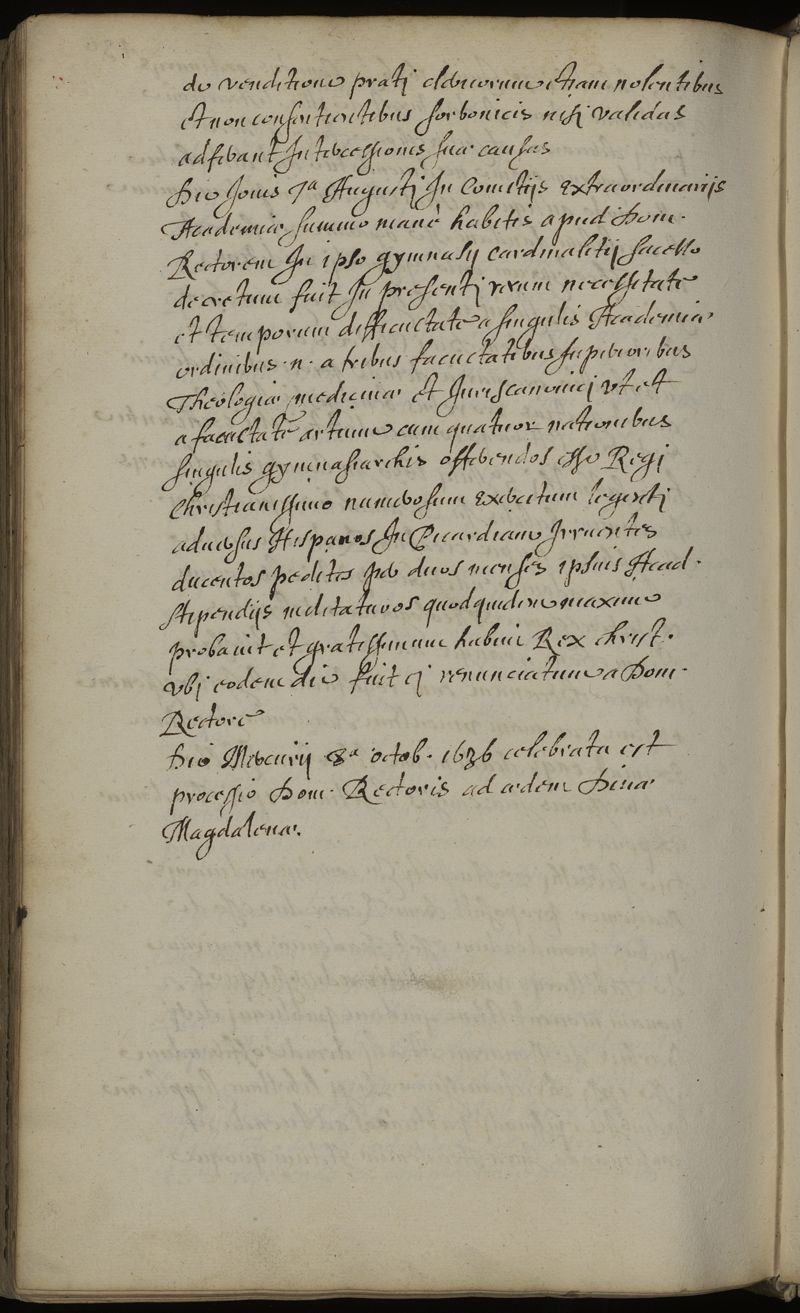 de venditione pratj clericorum etiam nolentibus
et non consentientibus sorbonicis nisj validas
adferant Intercessionis suæ causas
Die Jouis 7ᵃ Augustj In Comitijs extraordinarijs
Academiæ summo manè habitis apud Dom.
Rectorem In ipso gymnasij Cardinalitij sacello
decretum fuit In presentj rerum necessitate
et temporum difficultate a singulis Academiæ
ordinibus .n. a tribus facultatibus superioribus
Theologiæ medicinæ et Juris canonici vt et
a facultate artium cum quatuor nationibus
singulis gymnasiarchis offerendos esse Regj
Christianissimo numerosum exercitum legentj
aduersus Hispanos In Picardiam Irruentes
ducentos pedites per duos menses ipsius Acad.
stipendijs militaturos quod quidem maxime
probauit et gratissimum habuit Rex christ.
vbj eodem die fuit ej renunciatum a Dom.
Rectore
Die Mercurij 8ᵃ octob. 1636 celebrata est
processio Dom. Rectoris ad ædem Diuæ
Magdalenæ.